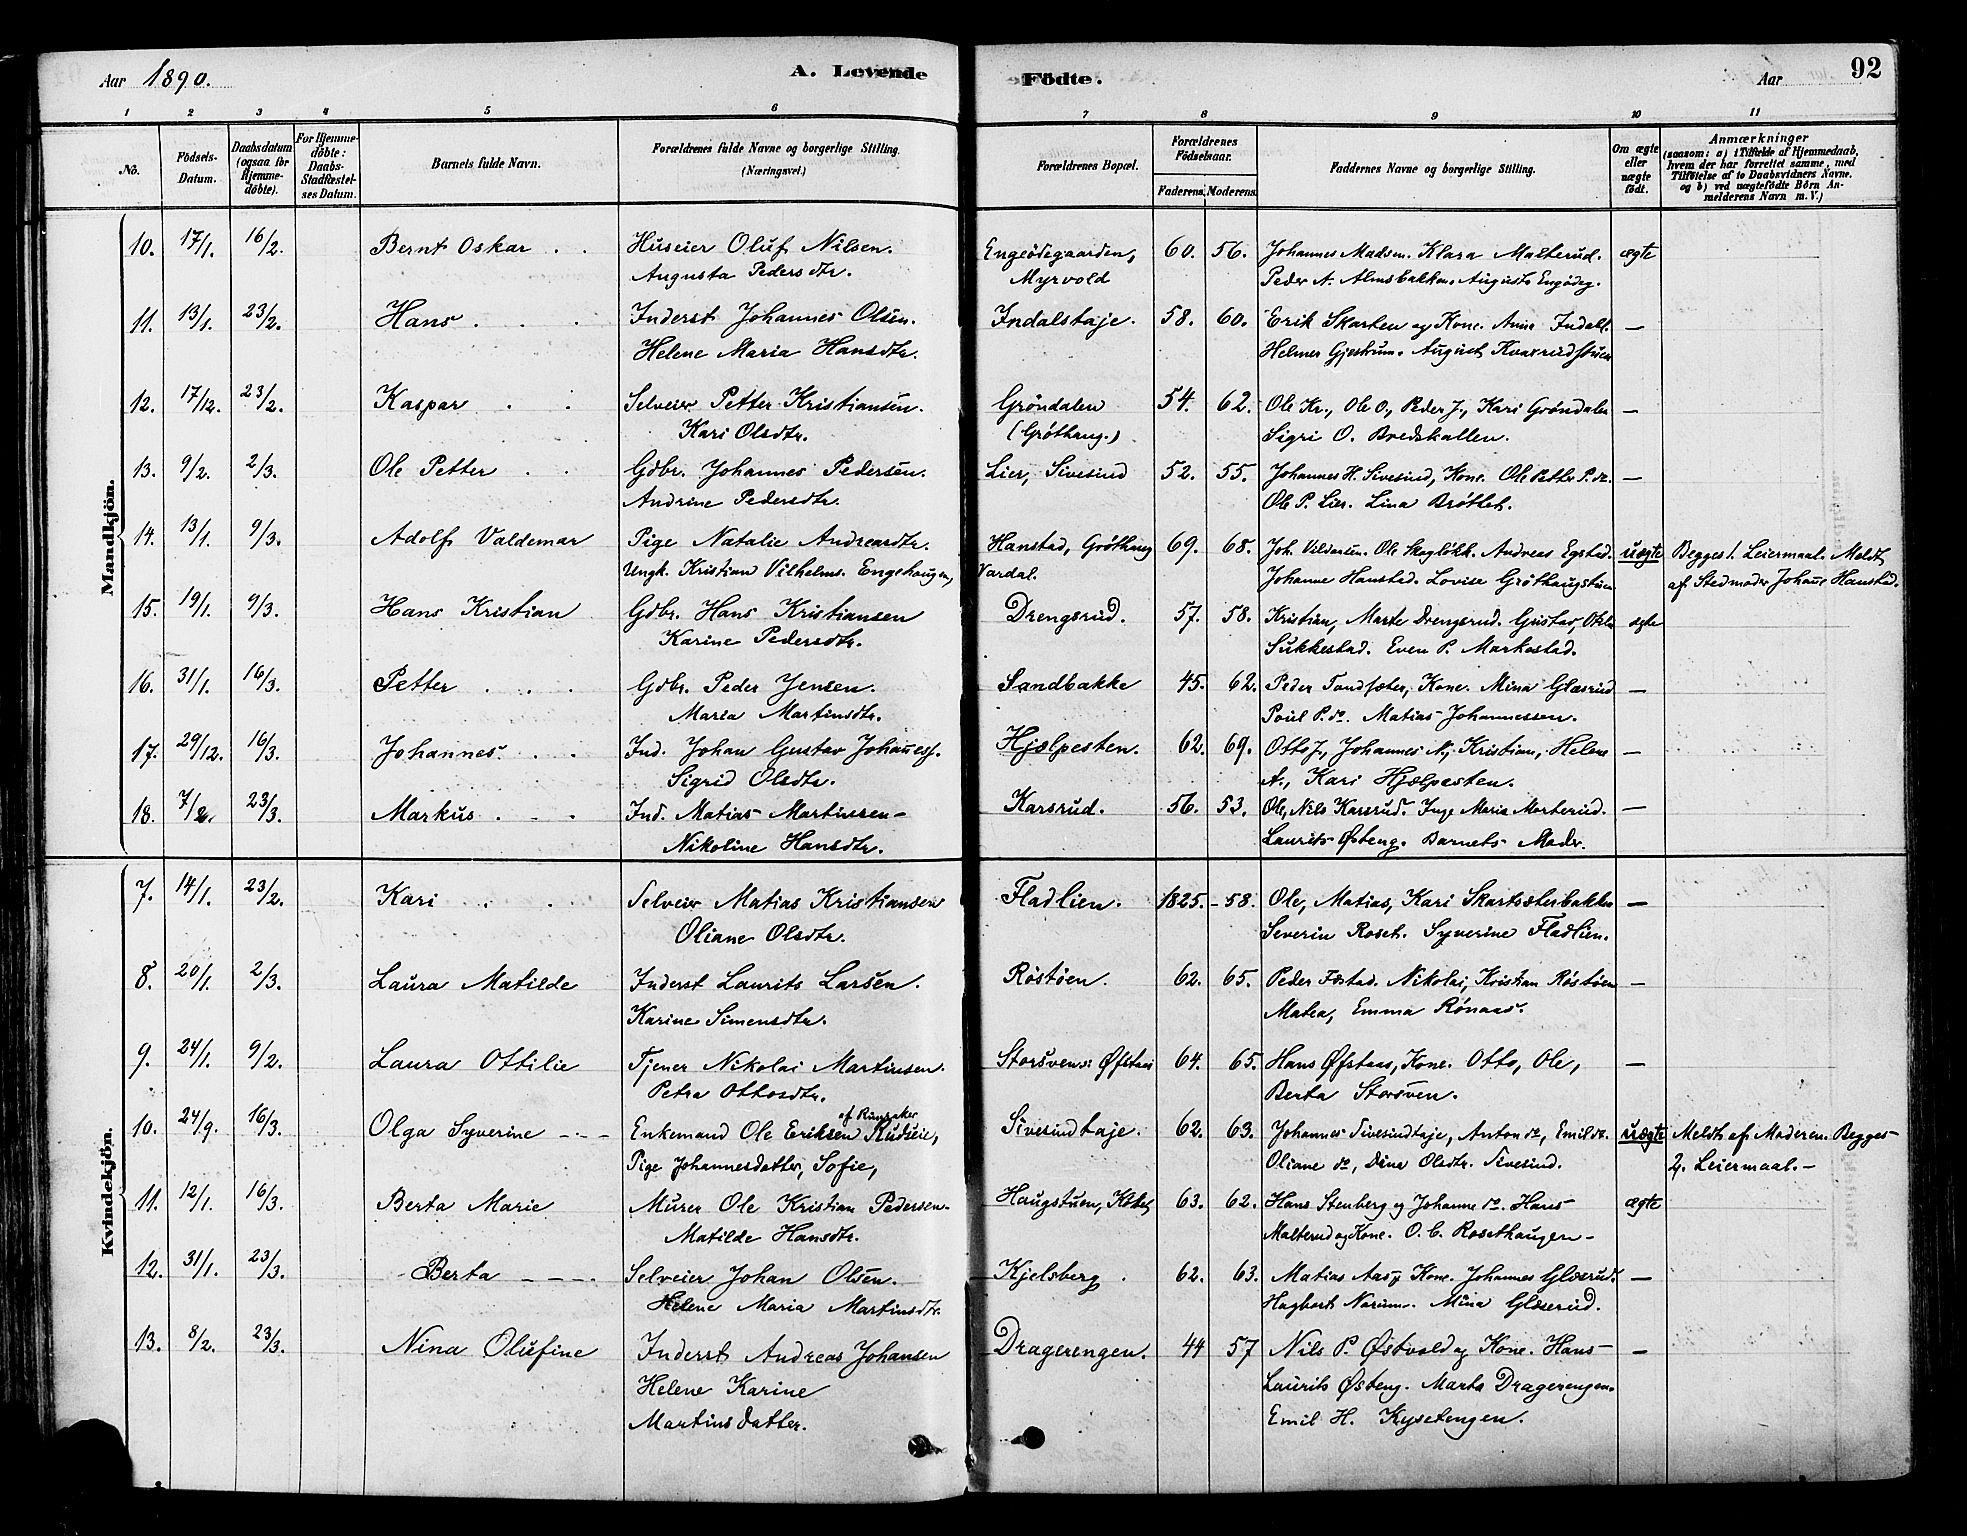 Aar 1890. A. Levende Födte. Aar 92
1 2 3 4 5 6 7 8 9 10 11
No. Födsels-Datum. Daabsdatum (ogsaa for Hjemmedöbte). For Hjemmedöbte: Daabs-Stadfæstelses Datum. Barnets fulde Navn. Forældrenes fulde Navne og borgerlige Stilling. (Næringsvei.) Forældrenes Bopæl. Forældrenes Födselsaar. Faderens. Moderens. Faddernes Navne og borgerlige Stilling. Om ægte eller uægte födt. Anmærkninger (saasom: a) i Tilfælde af Hjemmedaab, hvem der har forrettet samme, med Tilföielse af to Daabsvidners Navne, og b) ved uægtefödte Börn Anmelderens Navn m. V.)
Mandkjön.
10. 17/1. 16/2. Bernt Oskar . . Huseier Oluf Nilsen. Engeödegaarden, 60. 56. Johannes Madsen. Klara Malterud. ægte
Augusta Pedersdtr. Myrvold Peder A. Almsbakken. Augusta Engødeg.
11. 13/1. 23/2. Hans . . . Inderst Johannes Olsen. Indalstaje. 58. 60. Erik Skarten og Kone. Anne Indal. —
Helene Maria Hansdtr. Helmer Gjestrum. August Kvarudstuen
12. 17/12. 23/2. Kaspar . . Selveier Petter Kristiansen. Gröndalen 54. 62. Ole Kr., Ole O., Peder J., Kari Gröndalen —
Kari Olsdtr. (Gröthaug.) Sigri O. Bredskallen.
13. 9/2. 2/3. Ole Petter . . Gdbr. Johannes Pedersen. Lier, Sivesind 52. 55. Johannes H. Sivesind, Kone. Ole Petter P. do. —
Andrine Pedersdtr. Ole P. Lier. Lina Bröttet.
14. 13/1. 9/3. Adolf Valdemar Pige Natalie Andreasdtr. Hanstad, Gröthaug 69. 68. Joh. Vildersen. Ole Skoglökk. Andreas Egstad. uægte Begges 1. Leiermaal. Meldt
Ungk. Kristian Vilhelms. Engehaugen, Vardal. Johanne Hanstad. Lovise Gröthaugstuen af Stedmoder Johanne Hanstad.
15. 19/1. 9/3. Hans Kristian Gdbr. Hans Kristiansen Drengsrud. 57. 58. Kristian, Marte Drengsrud. Gustav, Otilie ægte
Karine Pedersdtr. Sukkestad. Even P. Markestad.
16. 31/1. 16/3. Petter . . . Gdbr. Peder Jensen. Sandbakke 45. 62. Peder Tandsæter, Kone. Mina Glæserud —
Maria Martinsdtr. Poul P. do. Matias Johannessen.
17. 29/12. 16/3. Johannes. . . Ind. Johan Gustav Johannesf. Hjælpesten. 62. 69. Otto J., Johannes N., Kristian, Helene —
Sigrid Olsdtr. A., Kari Hjælpesten.
18. 7/2. 23/3. Markus . . . Ind. Matias Martinsen Karsrud. 56. 53. Ole, Nils Karsrud. Inge Maria Marterud. —
Nikoline Hansdtr. Laurits Østeng. Barnets Moder.
Kvindekjön.
7. 14/1. 23/2. Kari . . Selveier Matias Kristiansen Fladlien. 1825. - 58. Ole, Matias, Kari Skartsæterbakken —
Oliane Olsdtr. Severin Roset. Syverine Fladlien.
8. 20/1. 2/3. Laura Matilde Inderst Laurits Larsen. Röstöen. 62. 65. Peder Fæstad. Nikolai, Kristian Röstöen —
Karine Simensdtr. Matea, Emma Rönaas.
9. 24/1. 9/2. Laura Ottilie Tjener Nikolai Martinsen. Storsven. Øfstaas 64. 65. Hans Øfstaas, Kone. Otto, Ole, —
Petra Ottosdtr. Berta Storsven.
10. 24/9. 16/3. Olga Syverine Enkemand Ole Eriksen af Ringsaker Rudseie, Sivesindtaje. 62. 63. Johannes Sivesindtaje, Anton do, Emil do. uægte Meldt af Moderen. Begges
Pige Johannesdatter, Sofie, Oliane do, Dine Olsdtr. Sivesind. 2. Leiermaal. —
11. 12/1. 16/3. Berta Marie Murer Ole Kristian Pedersen. Haugstuen, 63. 62. Hans Stenberg og Johanne do. Hans ægte
Matilde Hansdtr. Malterud og Kone. O. C. Rosethaugen
12. 31/1. 23/3. Berta Selveier Johan Olsen. Kjelsberg. 62. 63. Matias Aas, Kone. Johannes Glæserud. —
Helene Maria Martinsdtr. Hagbart Narum. Mina Glæserud.
13. 8/2. 23/3. Nina Olufine Inderst Andreas Johansen Dragerengen. 44 57 Nils P. Østvold og Kone. Hans —
Helene Karine Laurits Østeng. Marta Dragerengen.
Martinsdatter. Emil H. Kysetengen.